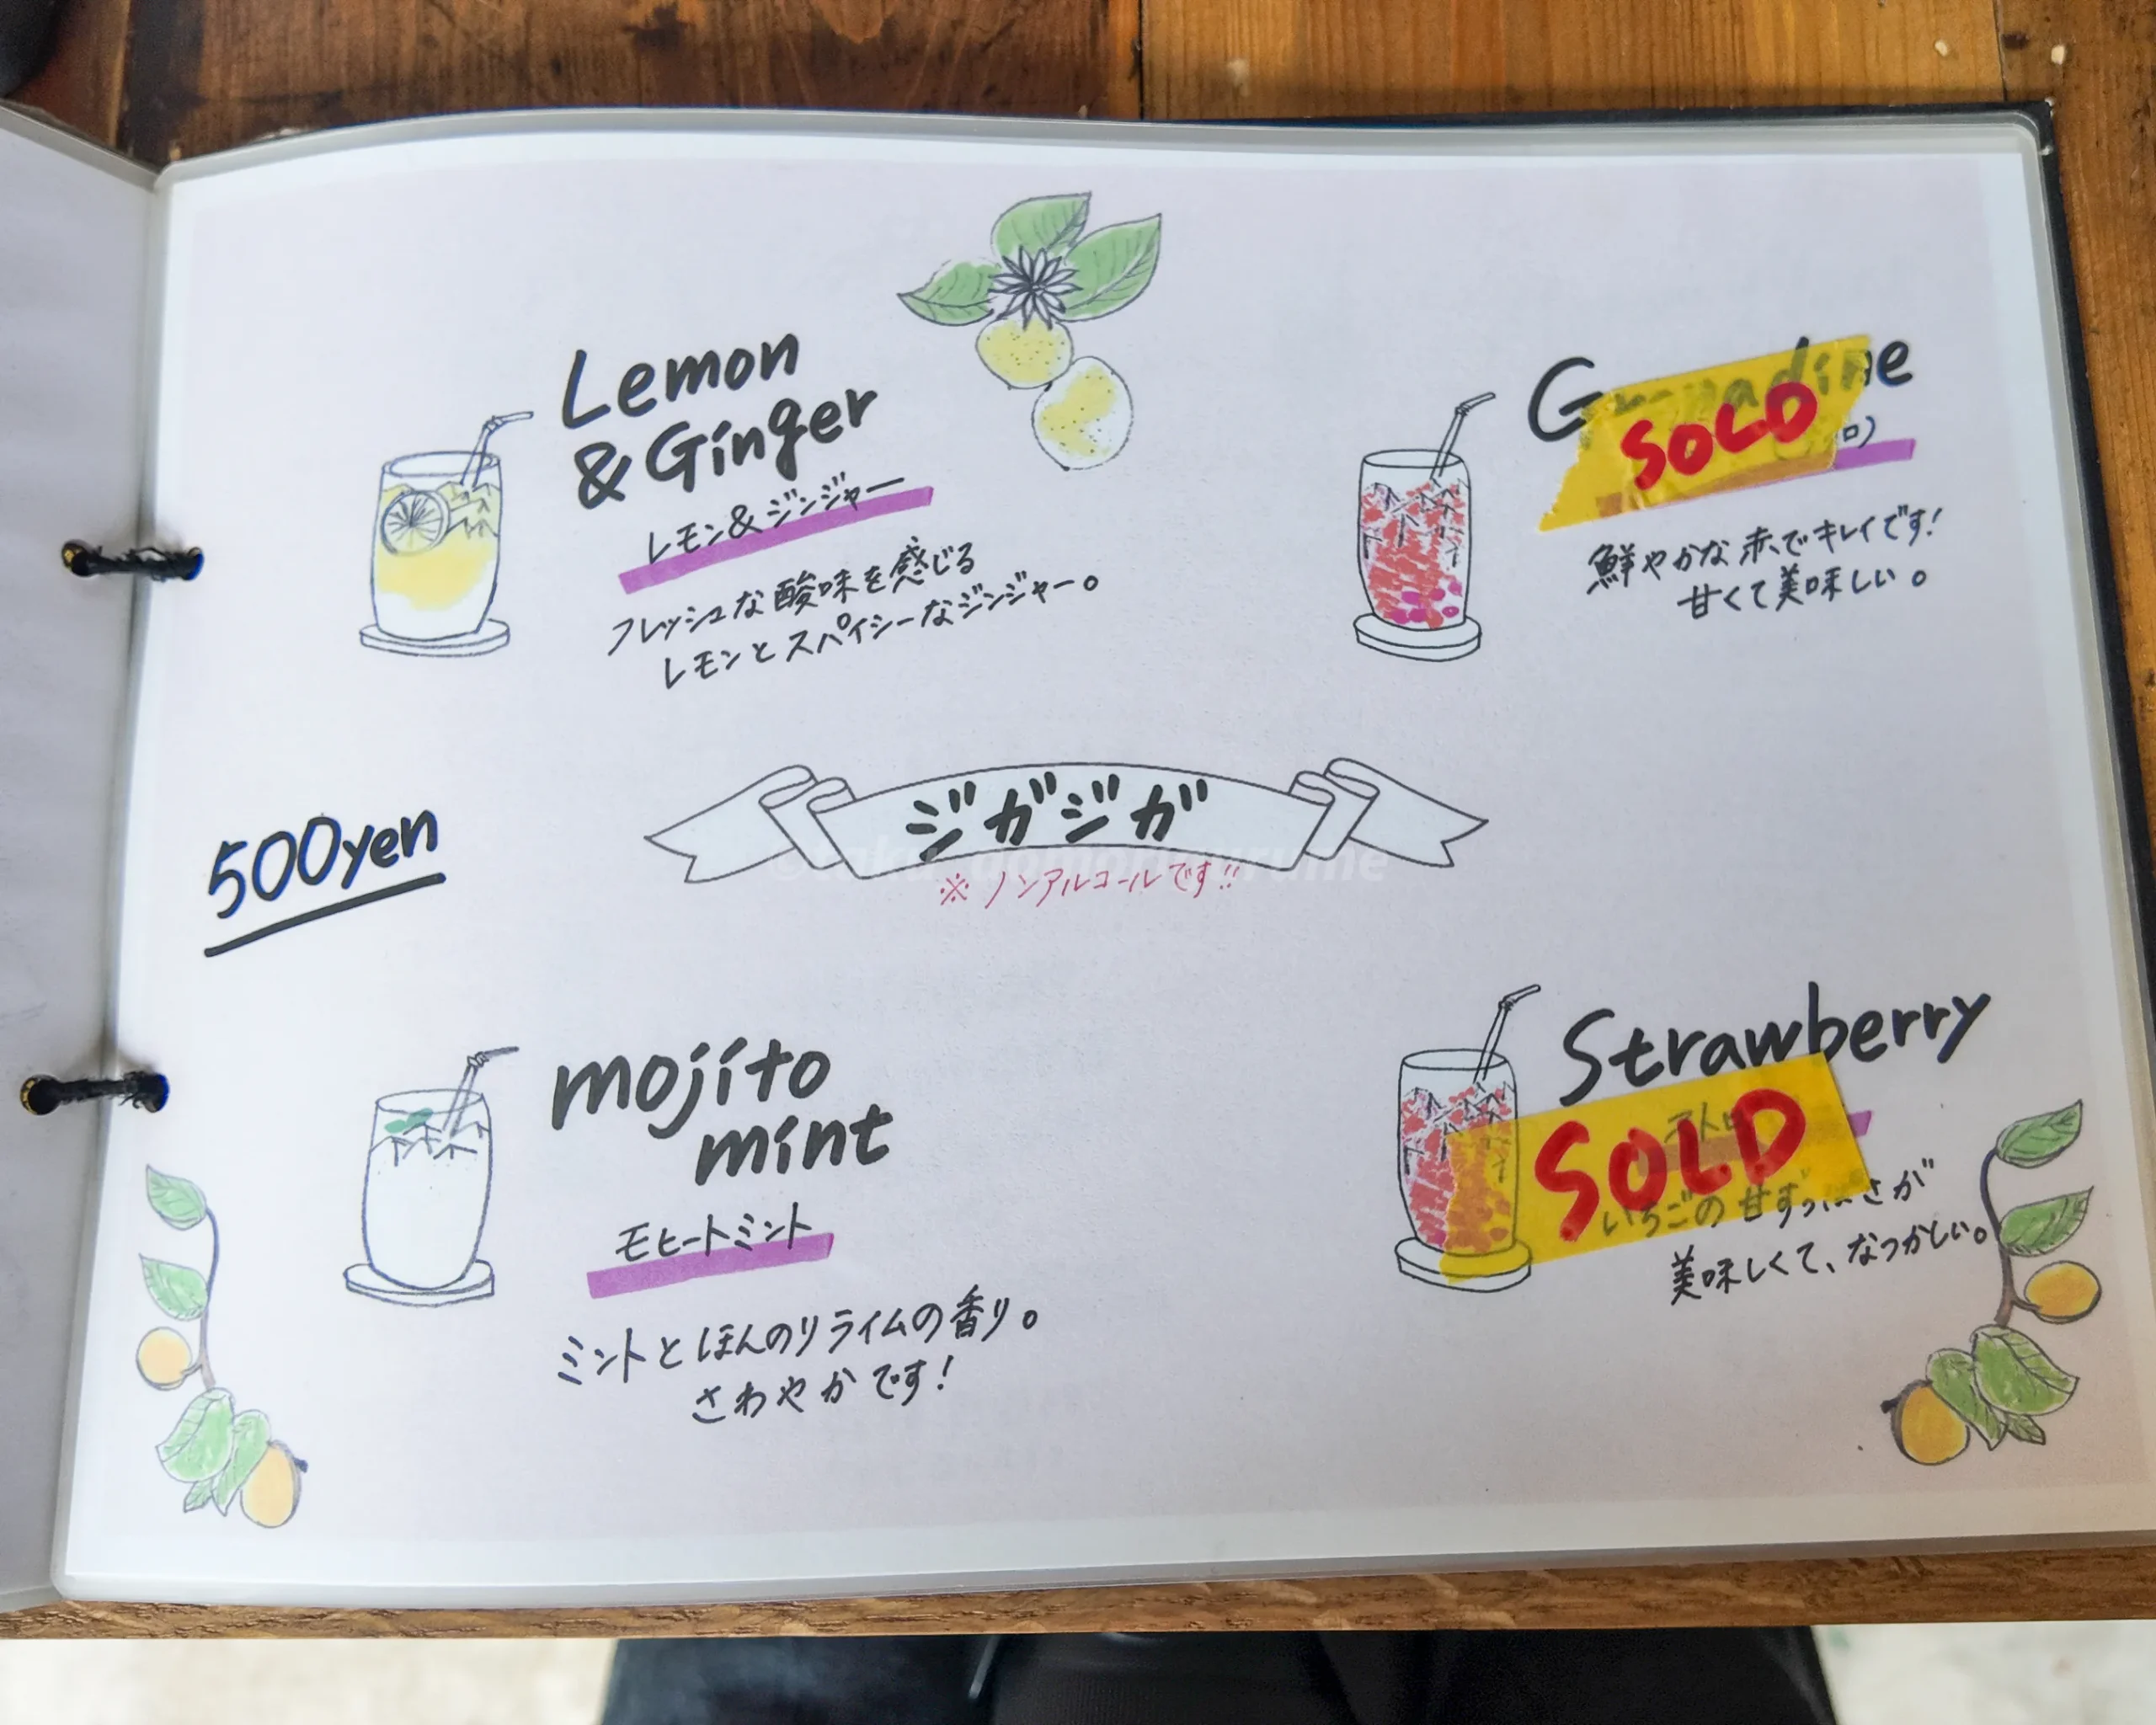 Lemon
& Ginger
レモン&ジンジャー
フレッシュな酸味を感じる
レモンとスパイシーなジンジャー。
Grenadine
SOLD
ロ)
鮮やかな赤でキレイです!
甘くて美味しい。
500yen
ジガジガ
※ノンアルコールです!!
mojito
mint
モヒートミント
ミントとほんのりライムの香り。
さわやかです!
Strawberry
SOLD
いちごの甘ずっぱさが
美味しくて、なつかしい。